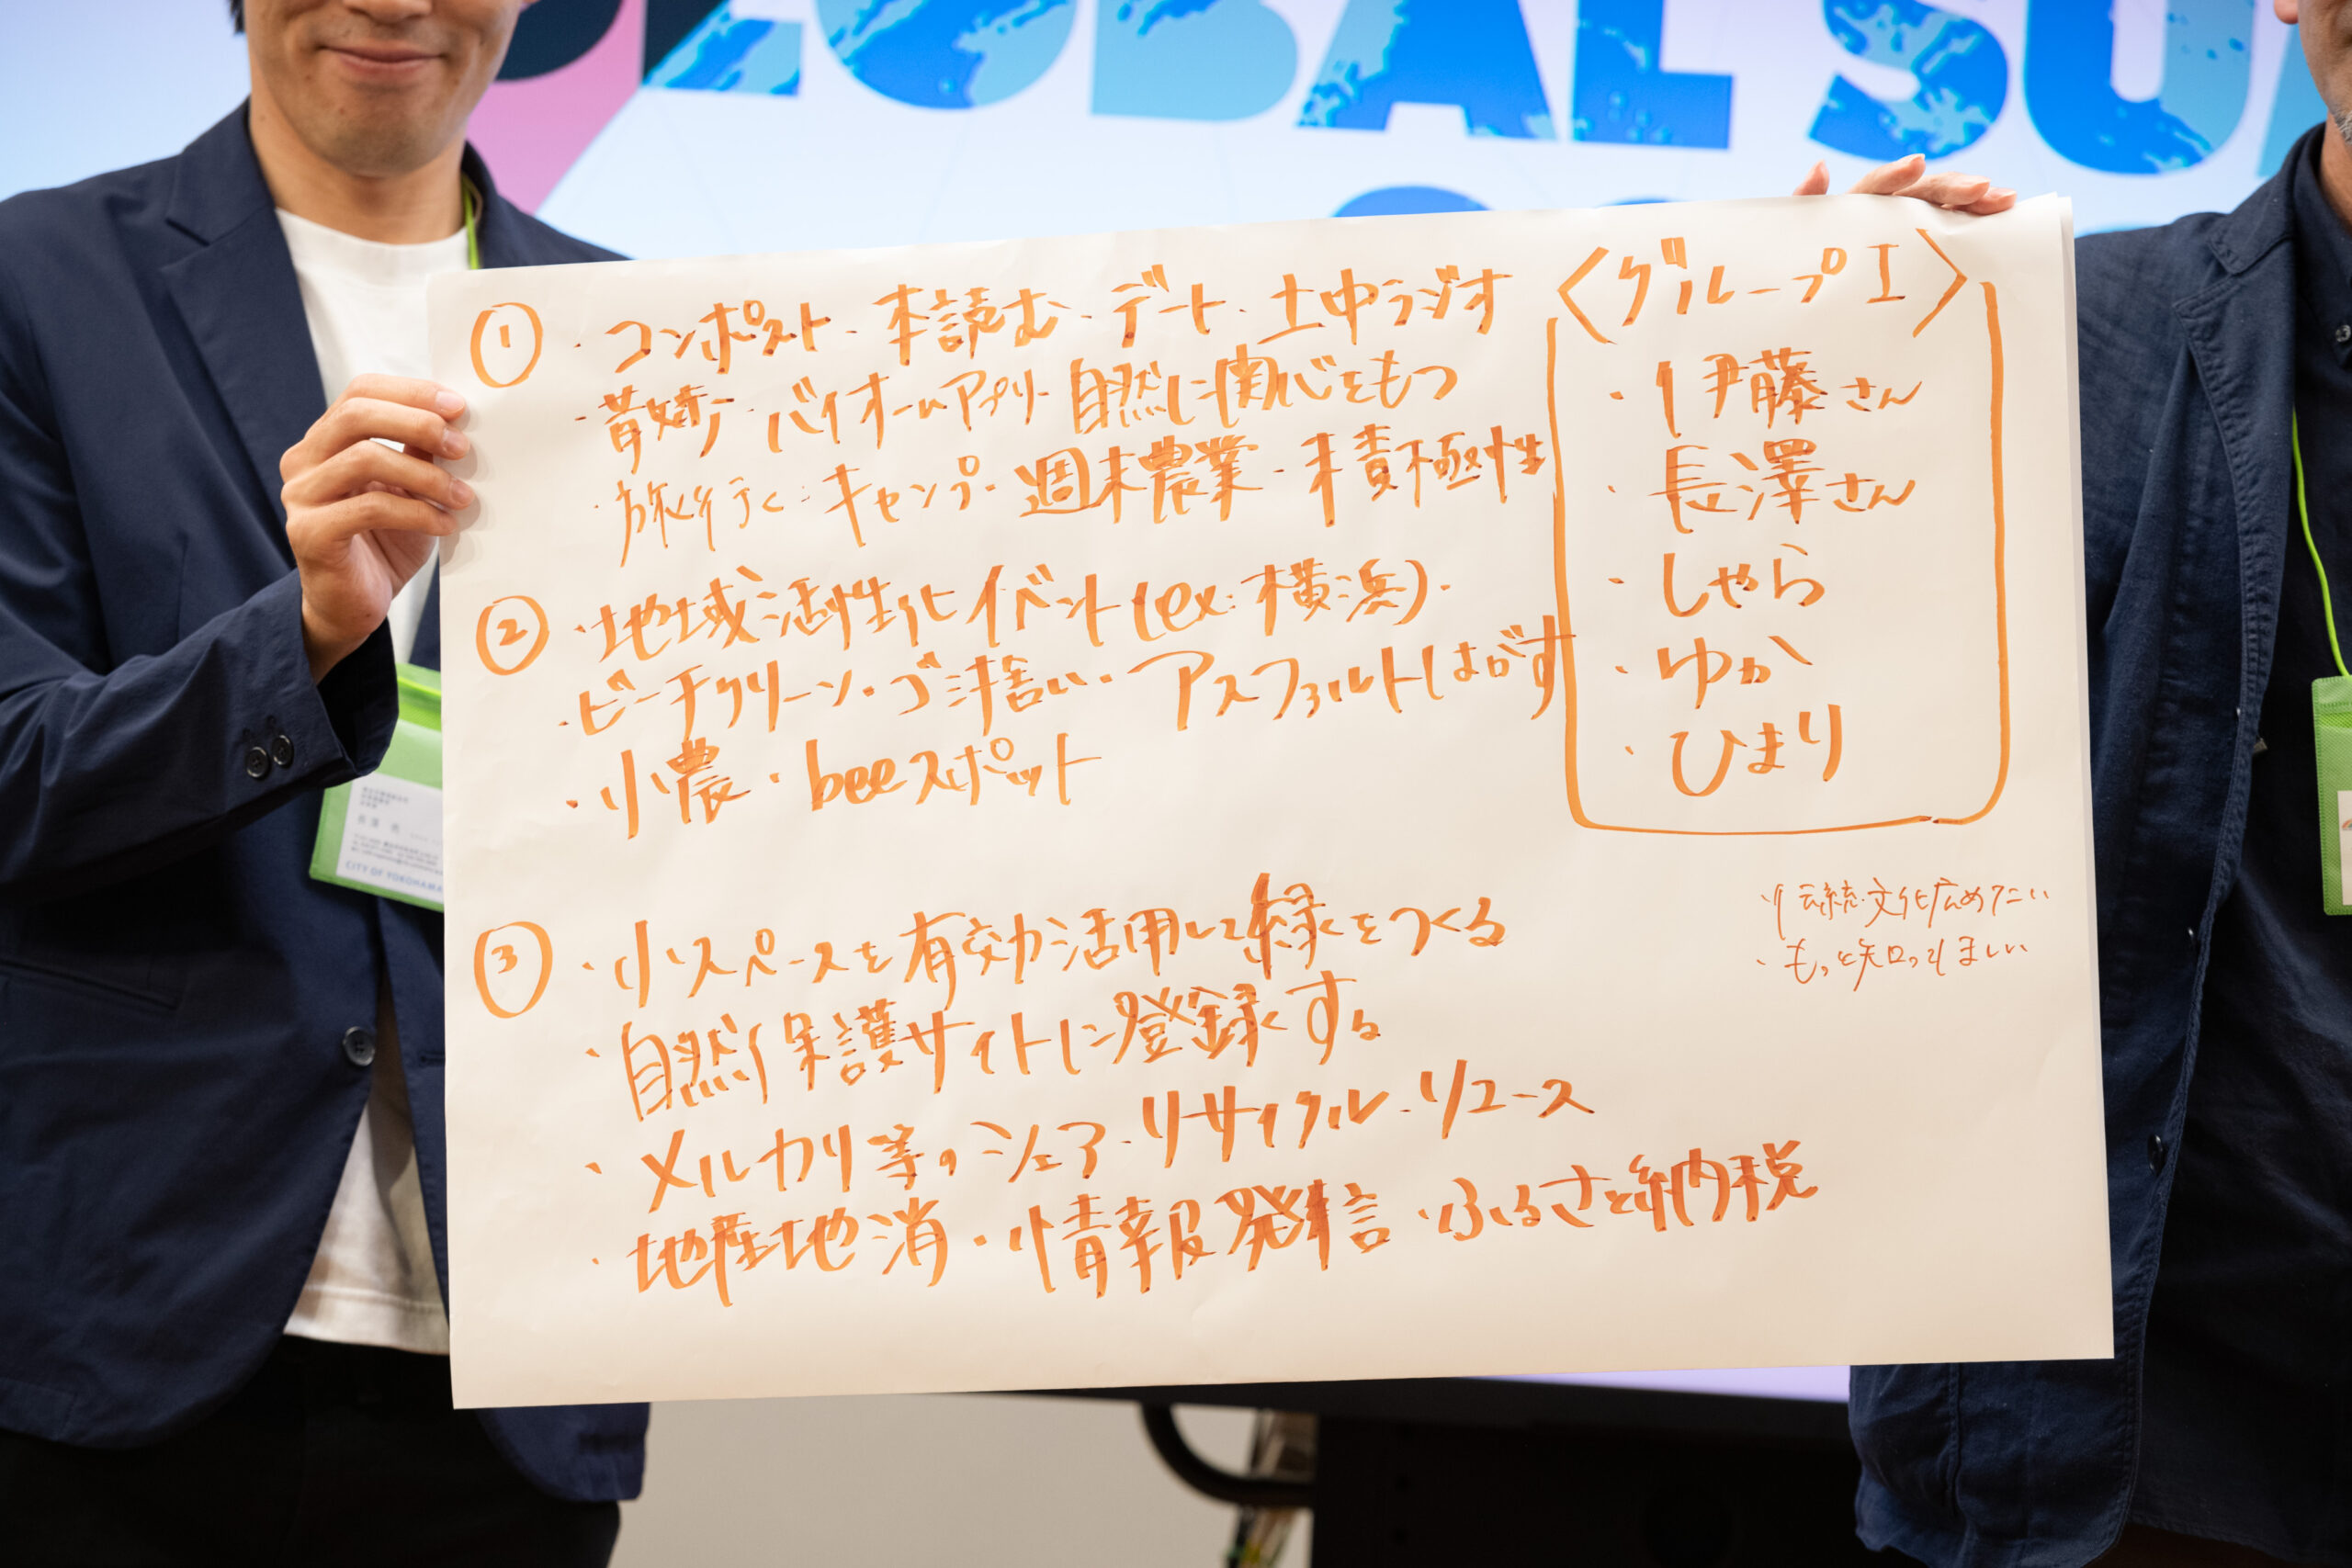 GLOBAL SU
① ・コンポスト・本読む・デート・土中ラジオ
・散歩・バイオームアプリ 自然に関心をもつ
・旅行行く・キャンプ・週末農業・積極性
② ・地域活性化イベント(ex:横浜)・
・ビーチクリーン・ゴミ拾い・アスファルトはがす
・小農・beeスポット
③ ・小スペースを有効活用して緑をつくる
・自然保護サイトに登録する
・メルカリ等のシェア・リサイクル・リユース
・地産地消・情報発信・ふるさと納税
〈グループI〉
・伊藤さん
・長澤さん
・しゃら
・ゆか
・ひまり
・伝統文化広めたい
・もっと知ってほしい
CITY OF YOKOHAMA